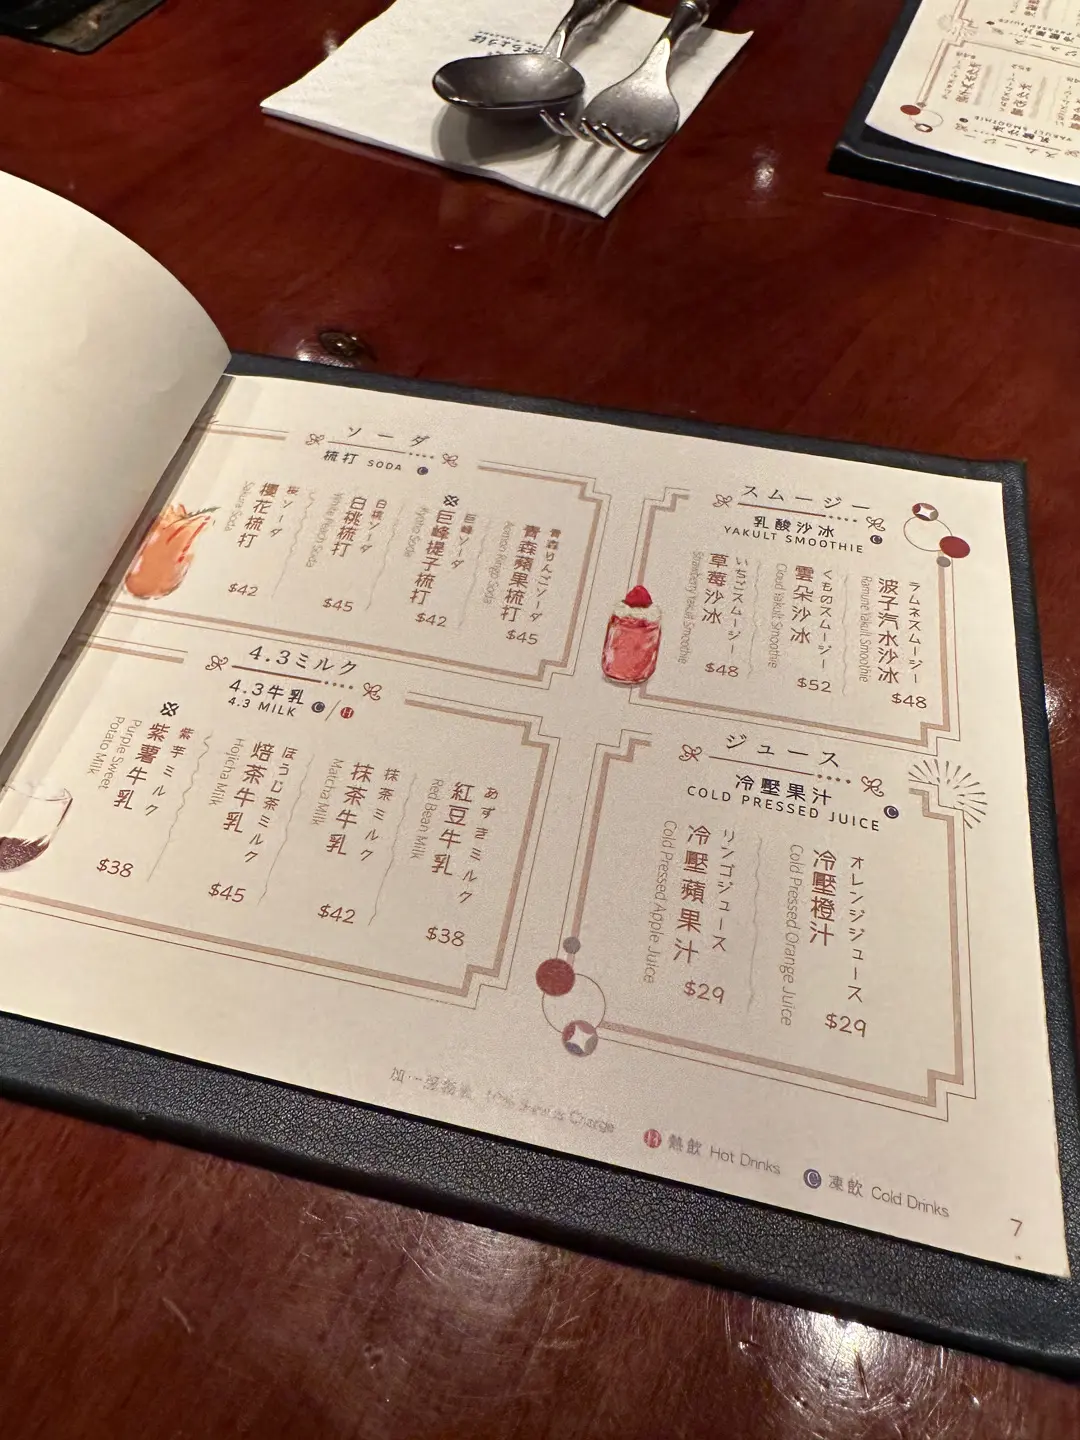 ソーダ
梳打 SODA C
桜ソーダ
櫻花梳打
Sakura Soda
$42
白桃ソーダ
白桃梳打
White Peach Soda
$45
巨峰ソーダ
巨峰提子梳打
Kyoho Soda
$42
青森りんごソーダ
青森蘋果梳打
Aomori Ringo Soda
$45
スムージー
乳酸沙冰
YAKULT SMOOTHIE C
いちごスムージー
草莓沙冰
Strawberry Yakult Smoothie
$48
くものスムージー
雲朵沙冰
Cloud Yakult Smoothie
$52
ラムネスムージー
波子汽水沙冰
Ramune Yakult Smoothie
$48
4.3ミルク
4.3牛乳
4.3 MILK C/H
紫芋ミルク
紫薯牛乳
Purple Sweet
Potato Milk
$38
ほうじ茶ミルク
焙茶牛乳
Hojicha Milk
$45
抹茶ミルク
抹茶牛乳
Matcha Milk
$42
あずきミルク
紅豆牛乳
Red Bean Milk
$38
ジュース
冷壓果汁
COLD PRESSED JUICE C
リンゴジュース
冷壓蘋果汁
Cold Pressed Apple Juice
$29
オレンジジュース
冷壓橙汁
Cold Pressed Orange Juice
$29
加一服務費 10% Service Charge
H 熱飲 Hot Drinks
C 凍飲 Cold Drinks
7